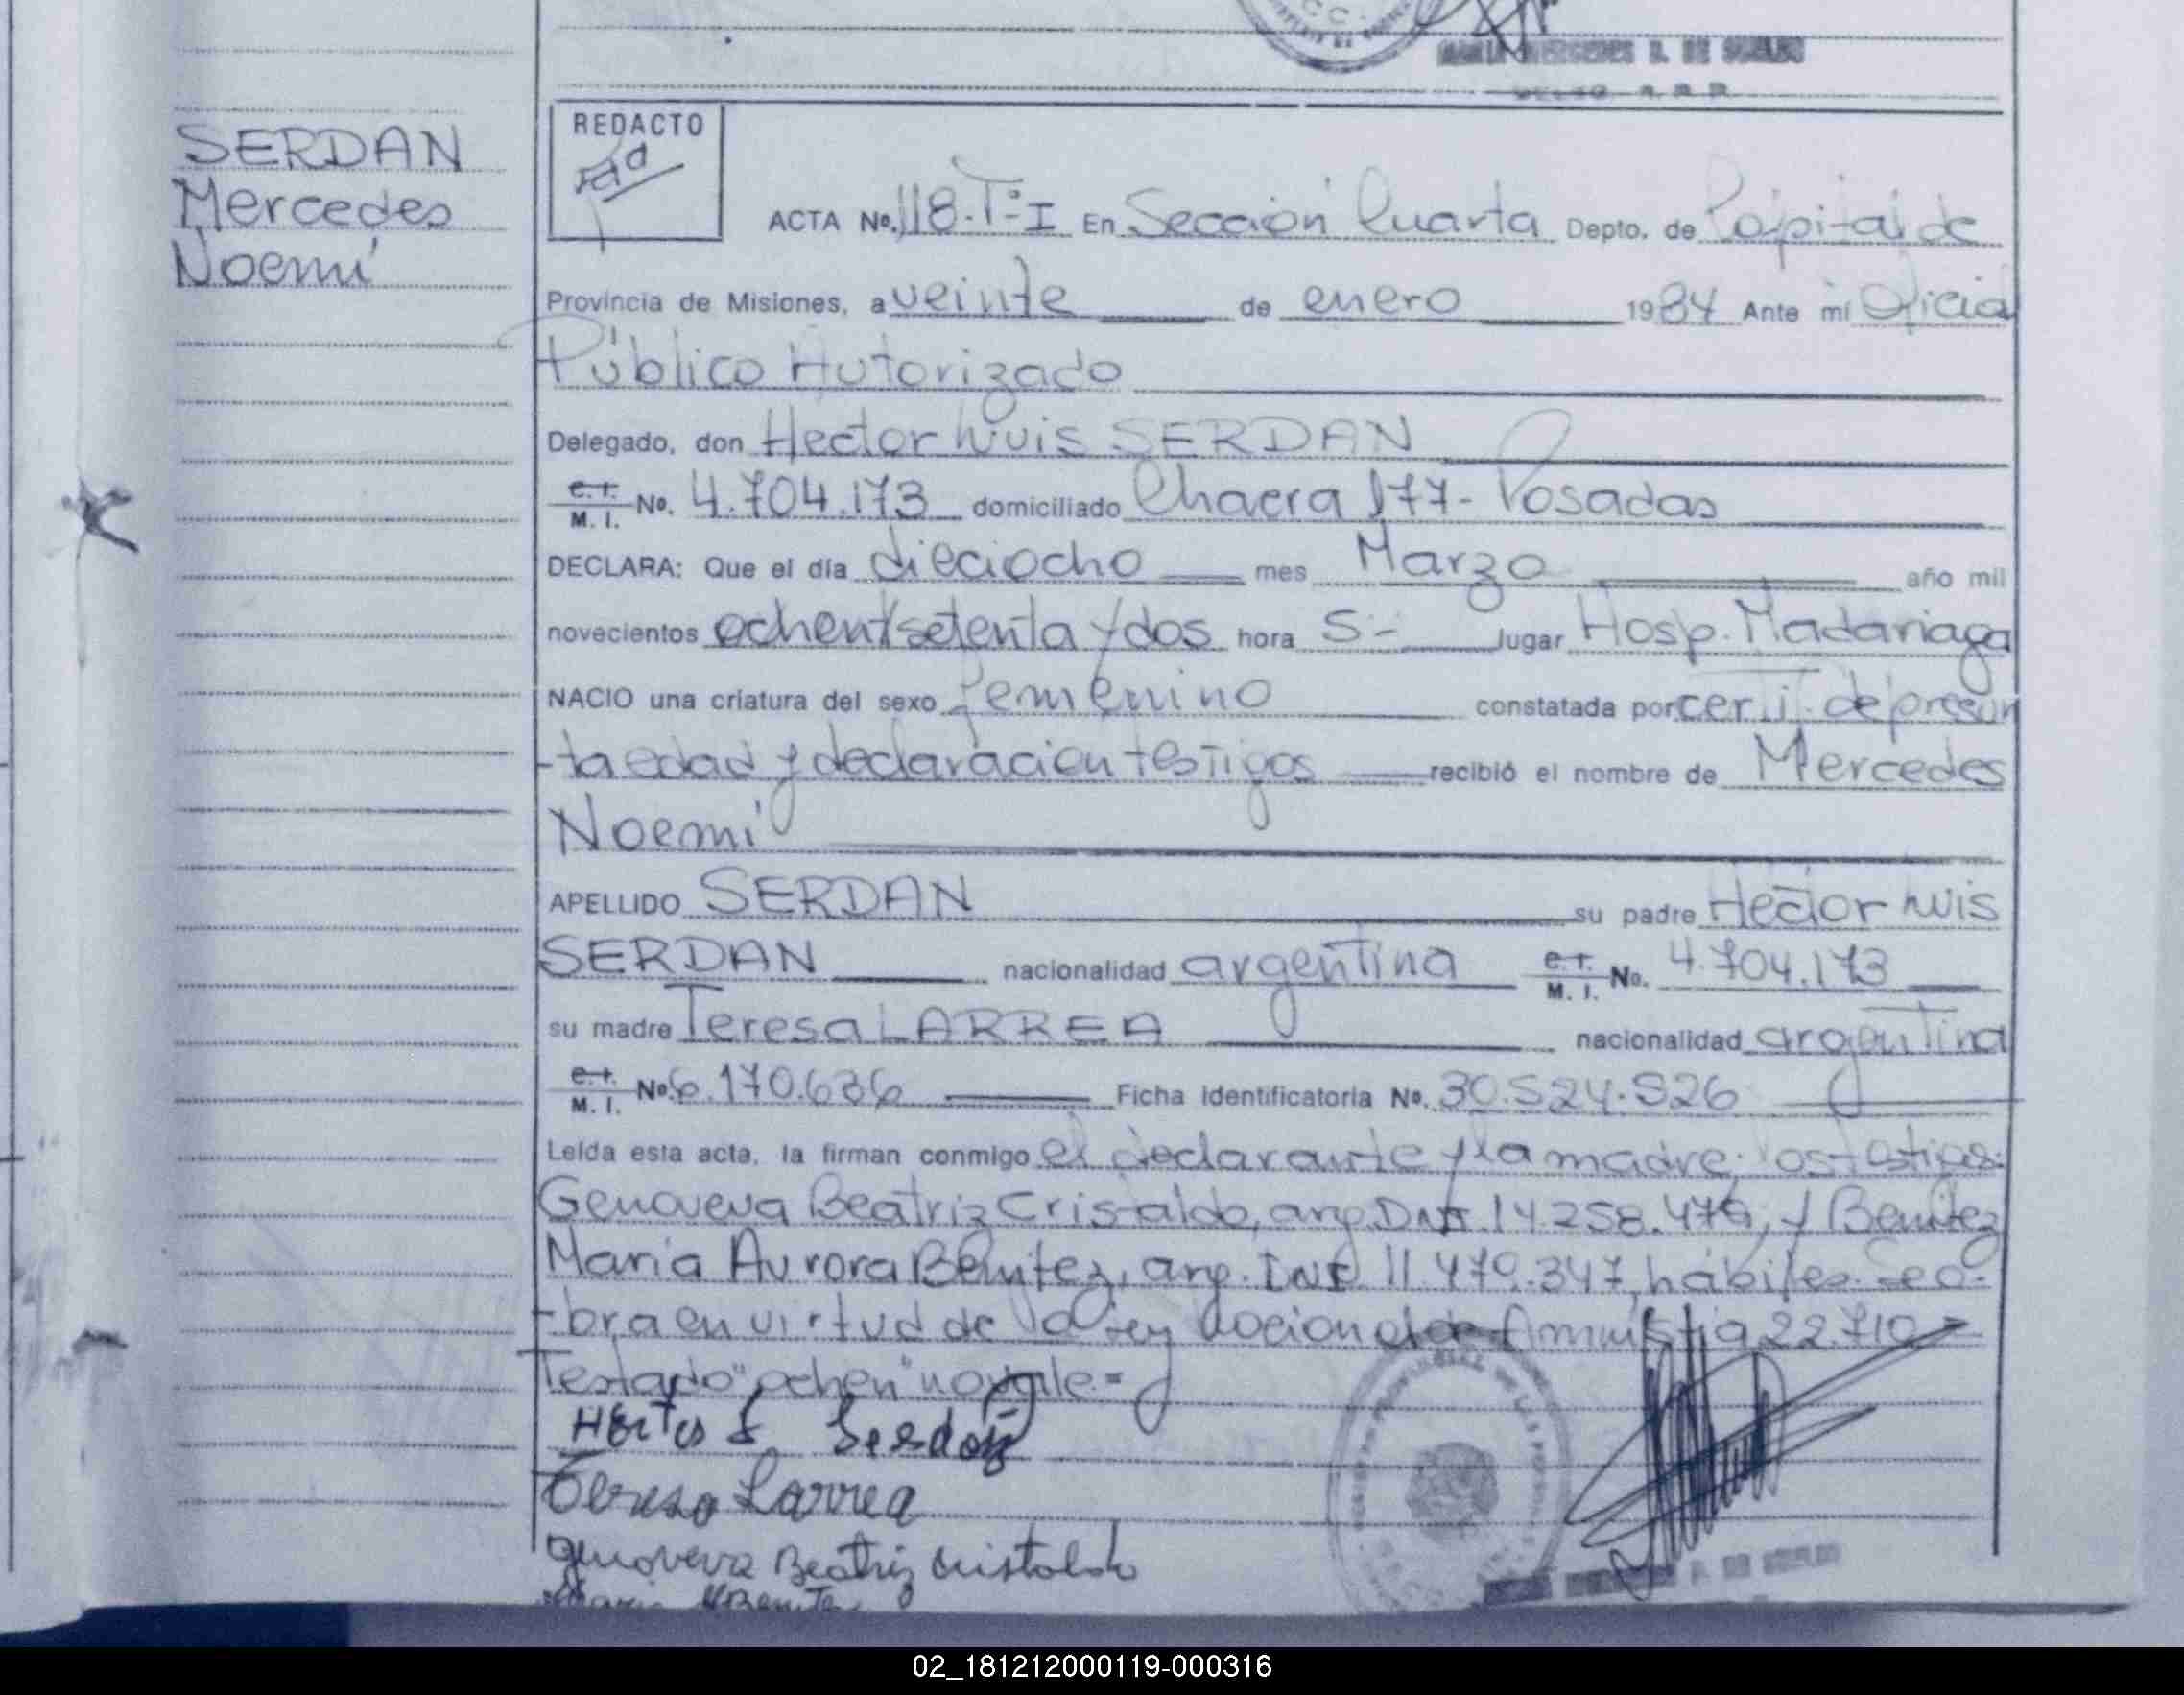 SERDAN
Mercedes
Noemí
REDACTO
ACTA No. 118. Tº I En Sección Cuarta Depto. de Capital de
Provincia de Misiones, a veinte de enero 1984 Ante mí Oficial
Público Autorizado
Delegado, don Hector Luis SERDAN
C.I. M.I. No. 4.704.173 domiciliado Chacra 177- Posadas
DECLARA: Que el día dieciocho mes Marzo año mil
novecientos ochen setenta y dos hora 5.- lugar Hosp. Madariaga
NACIO una criatura del sexo femenino constatada por certif. de presun
-ta edad y declaracion testigos recibió el nombre de Mercedes
Noemí
APELLIDO SERDAN su padre Hector Luis
SERDAN nacionalidad argentina C.I. M.I. No. 4.704.173
su madre Teresa LARREA nacionalidad argentina
C.I. M.I. No. 6.170.636 Ficha Identificatoria No. 30.524.526
Leída esta acta, la firman conmigo el declarante y la madre; los testigos:
Genoveva Beatriz Cristaldo, arg. DNI. 14.258.476, y Benitez
María Aurora Benitez, arg. DNI 11.470.347, hábiles. Se o-
-bra en virtud de la Ley Nacional de Amnistia 22.710
Testado "ochen" no vale=
Hector L Serdan
Teresa Larrea
Genoveva Beatriz Cristaldo
Maria A Benitez
02_181212000119-000316